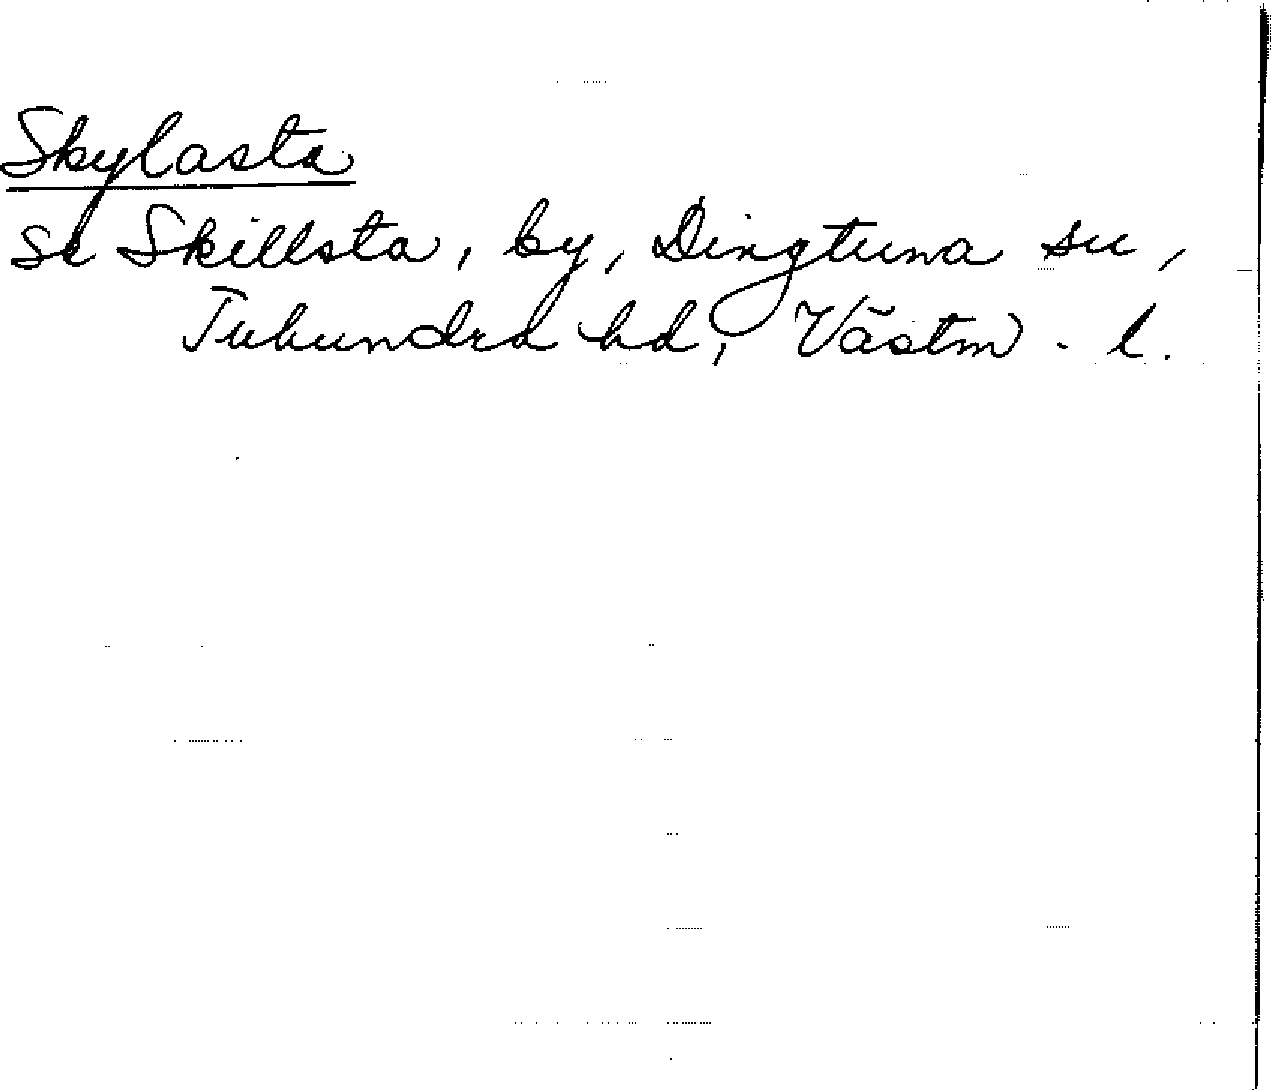 Skylasta
se Skillsta, by, Dingtuna sn,
Tuhundra hd, Västm. l.